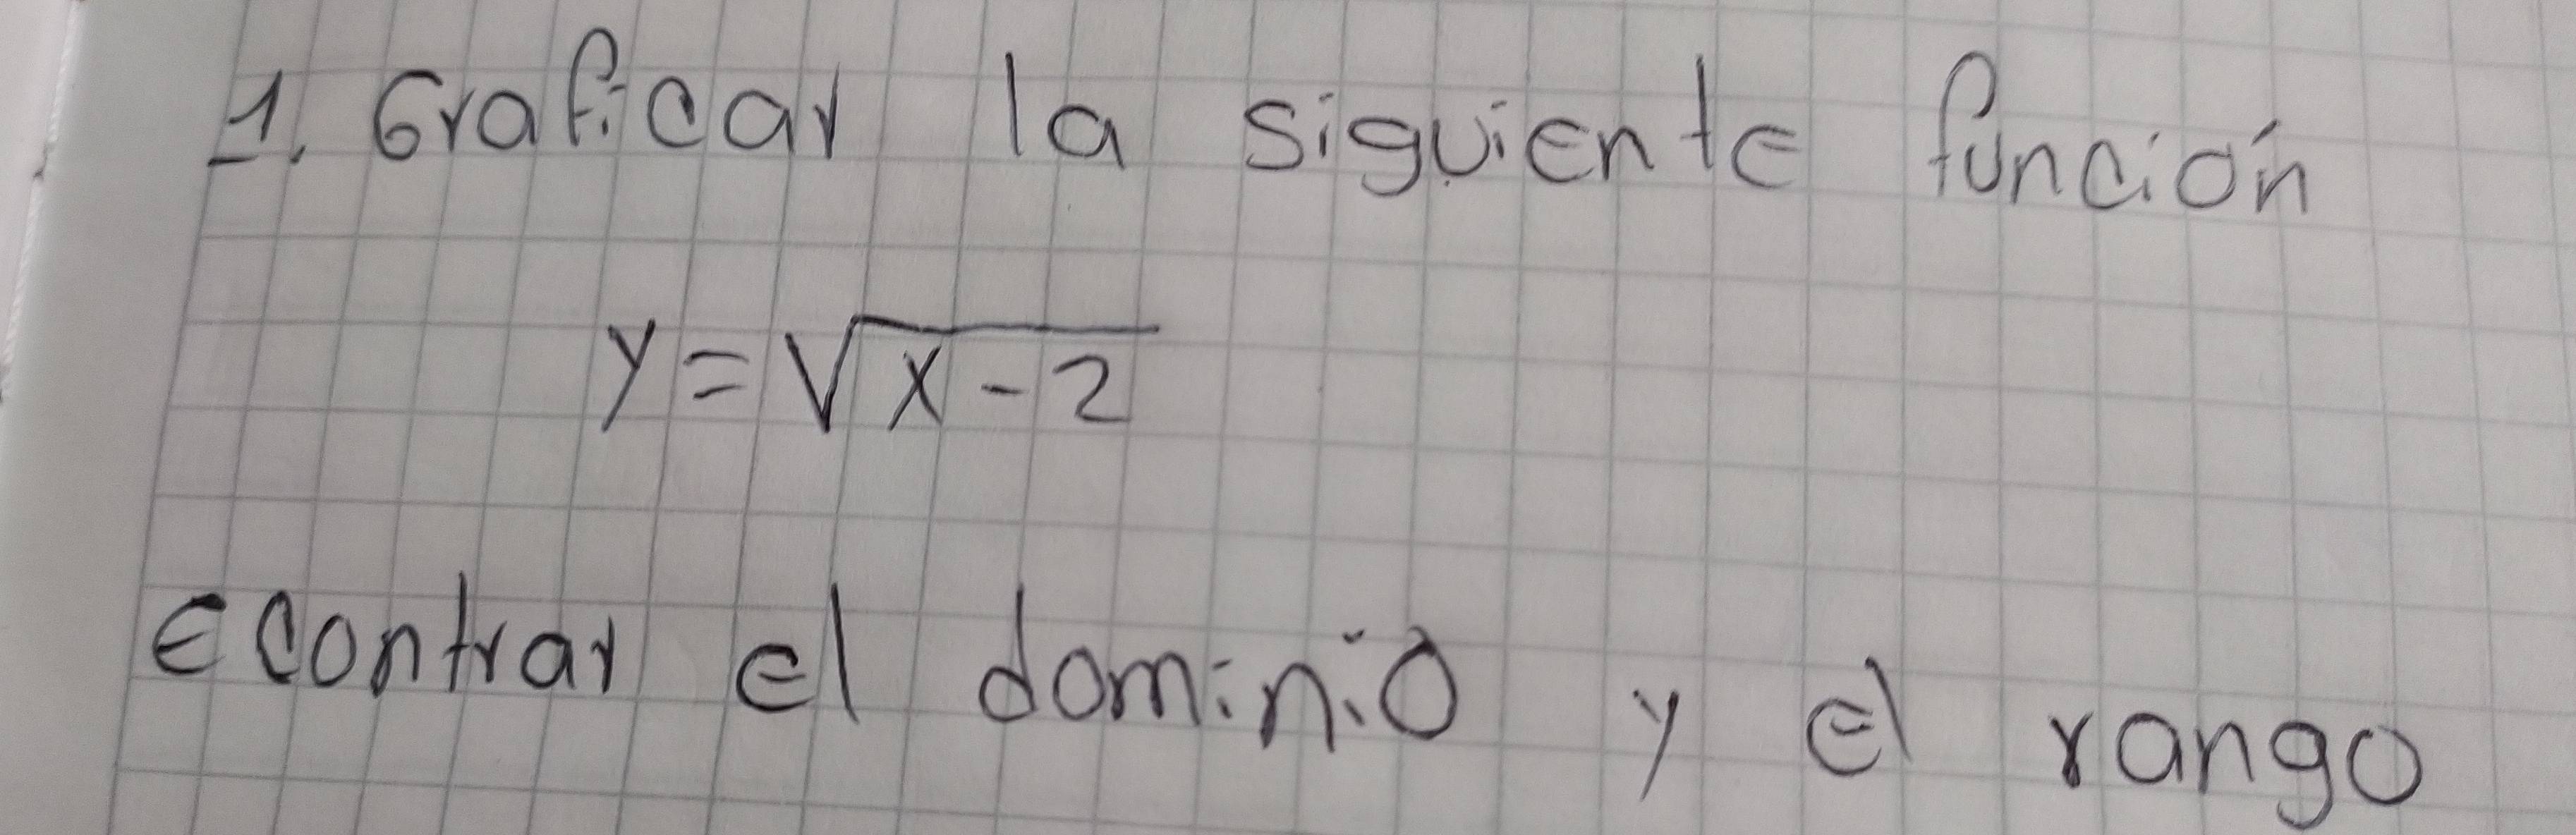 1. Graficar la siguiente función
y = √x-2
econtrar el dominio y el rango